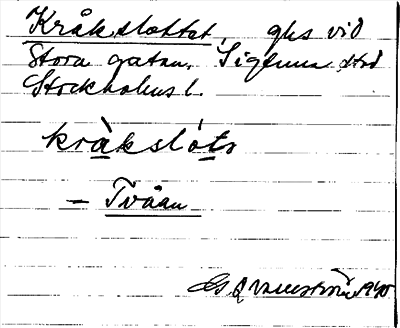 Kråkslottet, ghs vid
Stora gatan, Sigtuna stad
Stockholms l.
kråkslòts
– Tvåan
1940